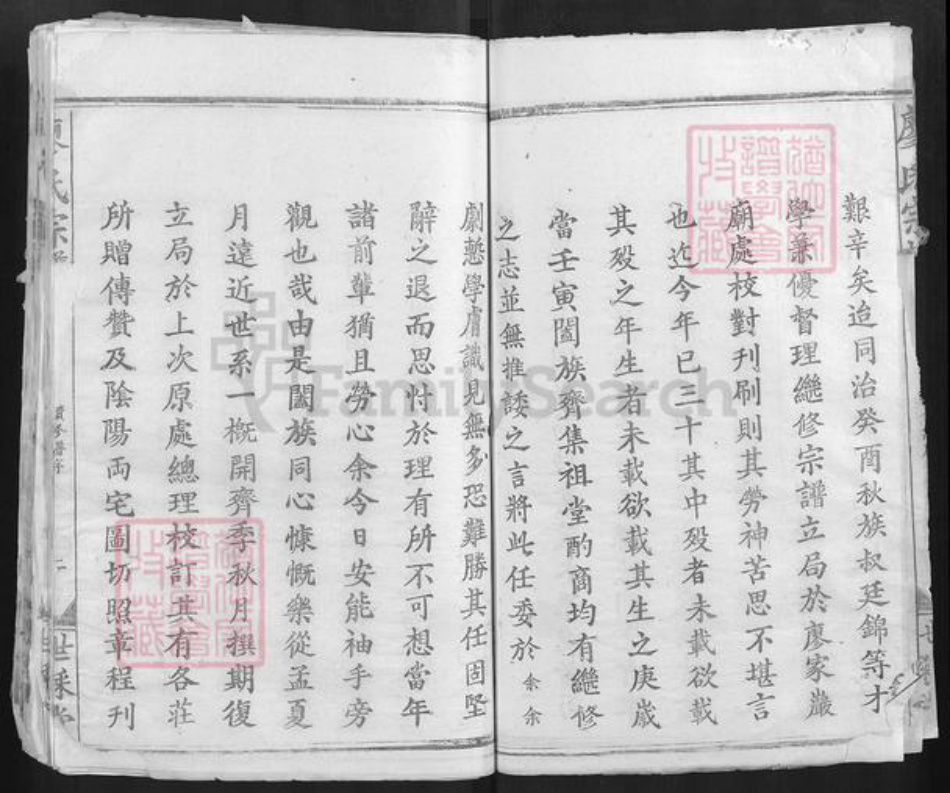 艱辛矣迨同治癸酉秋族叔廷錦等才
學兼優督理繼修宗譜立局於廖家巖
廟處校對刊刷則其勞神苦思不堪言
也迄今年已三十其中歿者未載欲載
其歿之年生者未載欲載其生之庚歲
當壬寅闔族齊集祖堂酌商均有繼修
之志並無推諉之言將此任委於余余
劇慙學膚識見無多恐難勝其任固堅
辭之退而思忖於理有所不可想當年
諸前輩猶且勞心余今日安能袖手旁
觀也哉由是闔族同心慷慨樂從孟夏
月遠近世系一概開齊季秋月撰期復
立局於上次原處總理校訂其有各莊
所贈傳贊及陰陽両宅圖切照章程刊
FamilySearch